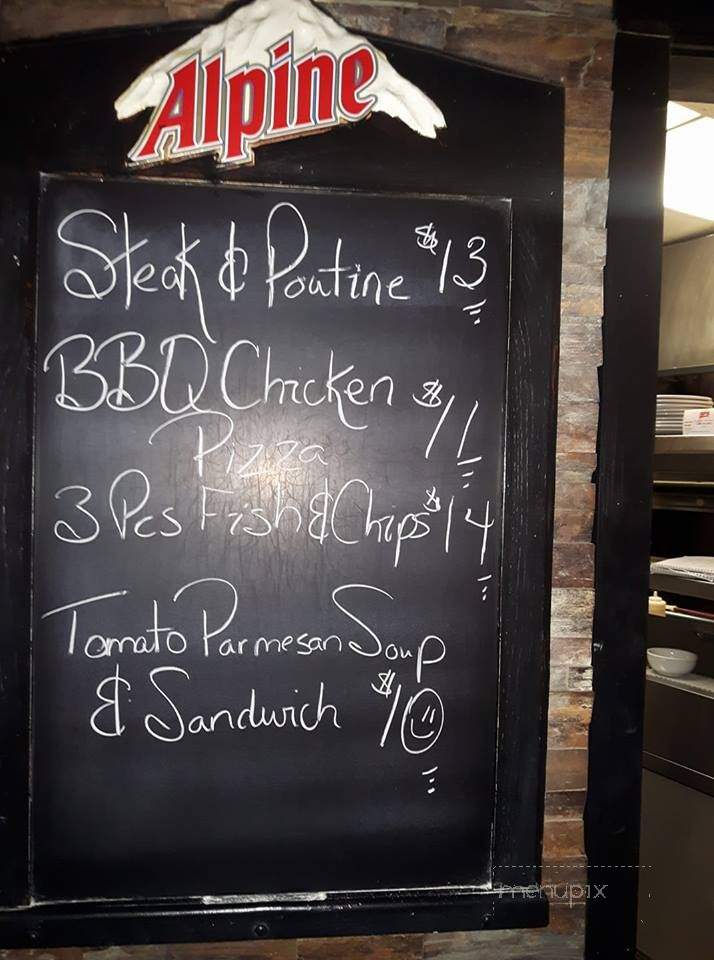 Alpine
Steak & Poutine $13
BBQ Chicken $11
Pizza
3 Pcs Fish & Chips $14
Tomato Parmesan Soup
& Sandwich $10
menupix